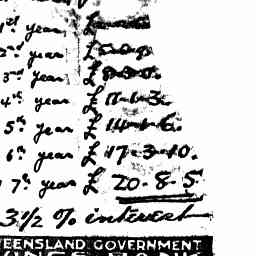 1st year £
2nd year £5-0-9.
3rd year £8-3-0.
4th year £11-1-3.
5th year £14-1-6.
6th year £17-3-10.
7th year £20-8-5
3 1/2 % interest
EENSLAND GOVERNMENT